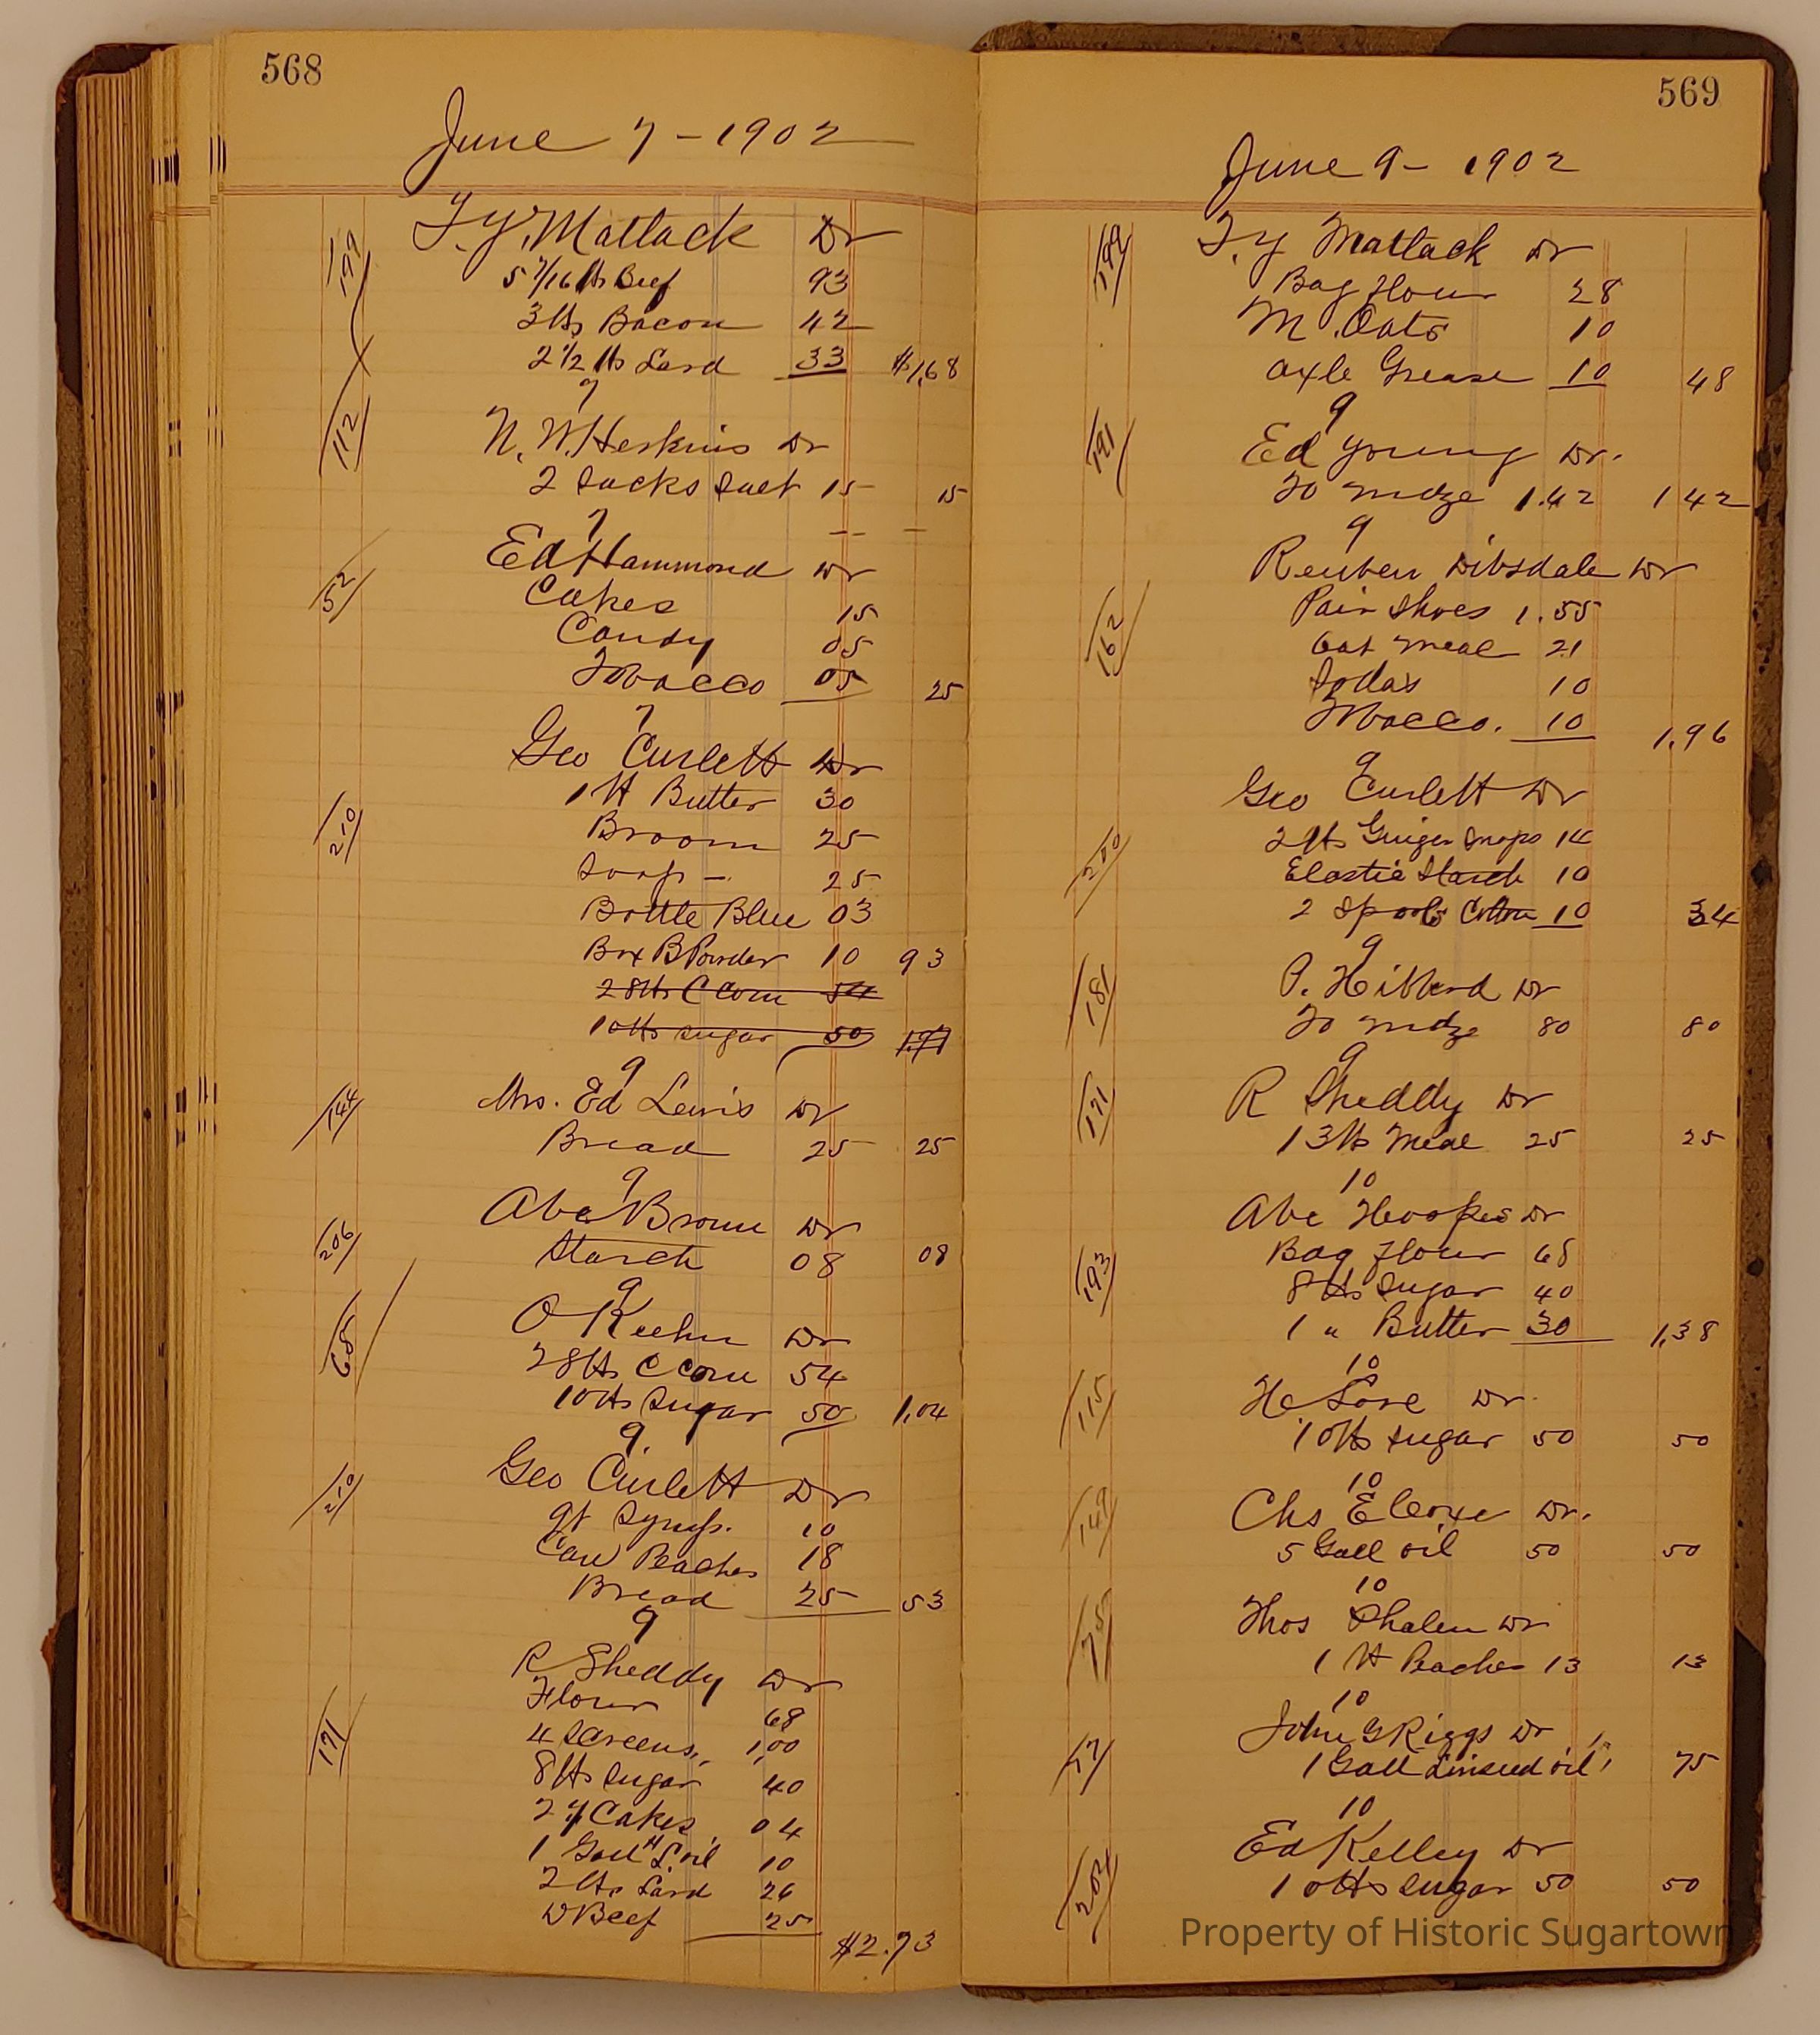 568
June 7 - 1902
199
T. Y. Matlack Dr
5 7/16 lbs Beef 93
3 lbs Bacon 42
2 1/2 lbs Lard 33 $1,68
7
112
N. W. Heskins Dr
2 Sacks Salt 15 15
7
52
Ed Hammond Dr
Cakes 15
Candy 05
Tobacco 05 25
7
210
Geo Curlett Dr
1 lb Butter 30
Broom 25
Soap - 25
Bottle Blue 03
Box B Powder 10 93
28 lbs C Corn 54
10 lbs sugar 50 1.97
9
144
Mrs. Ed Lewis Dr
Bread 25 25
9
206
Abe Brown Dr
Starch 08 08
9
65
O Keehn Dr
28 lbs C Corn 54
10 lbs Sugar 50 1,04
9.
210
Geo Curlett Dr
qt Syrup. 10
Can Peaches 18
Bread 25 53
9
171
R Sheddy Dr
Flour 68
4 Screens, 1,00
8 lbs sugar 40
2 Y Cakes 04
1 Gall H L. oil 10
2 lbs Lard 26
D Beef 25 $2.73
569
June 9 - 1902
199
T. Y Matlack Dr
Bag Flour 28
M. Oats 10
Axle Grease 10 48
9
191
Ed Young Dr.
To mdze 1.42 1 42
9
162
Reuben Dibsdale Dr
Pair Shoes 1.55
Oat Meal 21
Sodas 10
Tobacco. 10 1,96
9
Geo Curlett Dr
2 lbs Ginger Snaps 14
Elastic Starch 10
2 Spools Cotton 10 34
9
181
P. Hibberd Dr
To mdze 80 80
9
171
R Sheddy Dr
13 lb Meal 25 25
10
193
Abe Hoopes Dr
Bag Flour 68
8 lbs Sugar 40
1 " Butter 30 1,38
10
115
H Lare Dr.
10 lbs sugar 50 50
10
149
Chs E Coxe Dr.
5 Gall oil 50 50
10
75
Thos Phalen Dr
1 lb Peaches 13 13
10
John G Riggs Dr
1 Gall Linseed oil 75
10
202
Ed Kelley Dr
10 lbs sugar 50 50
Property of Historic Sugartown